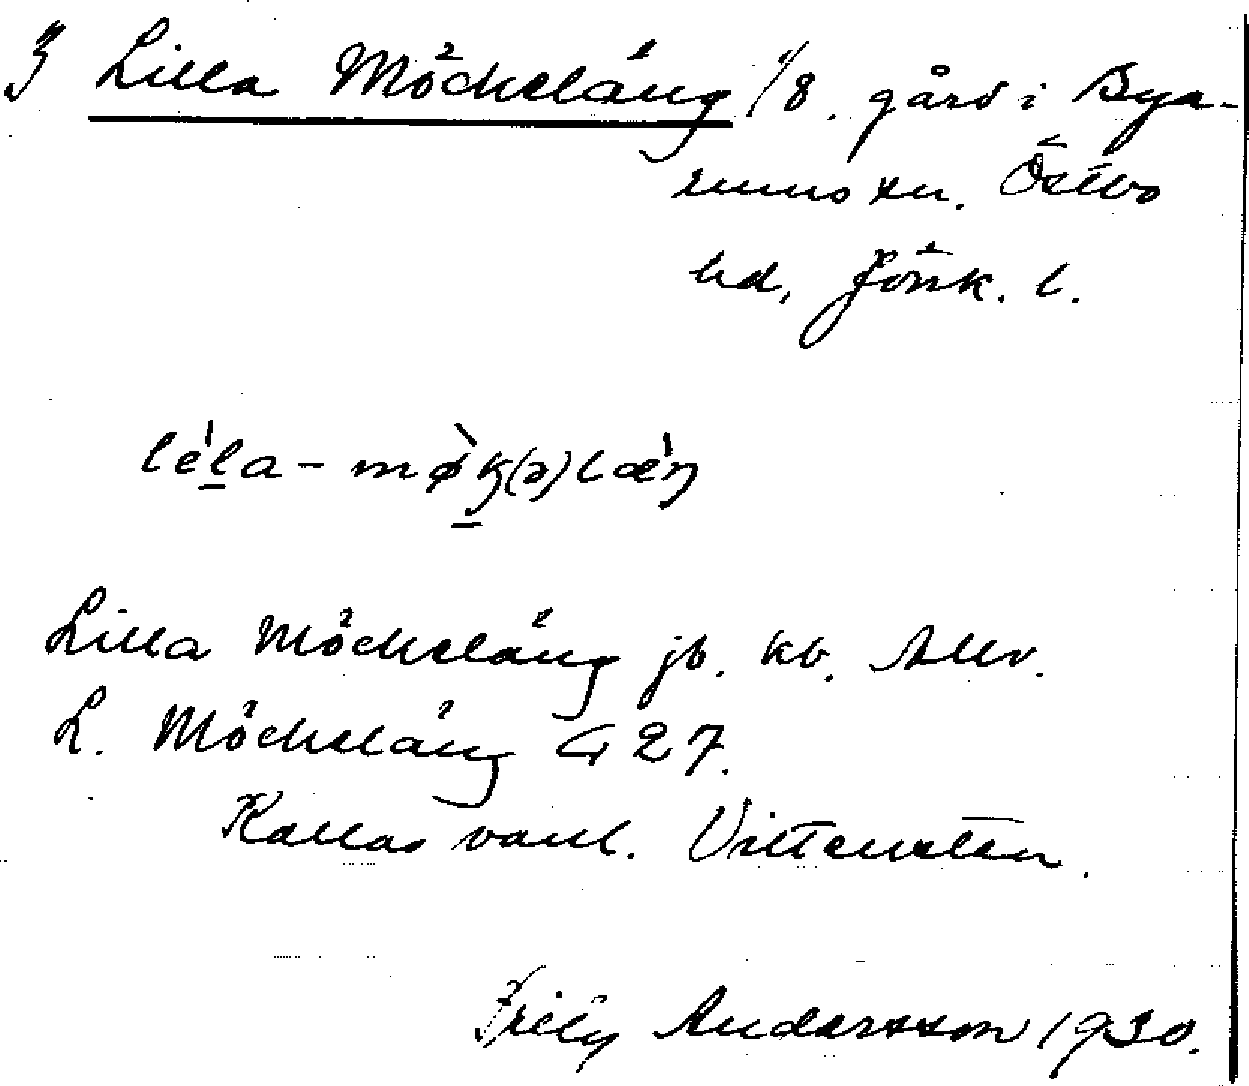 } Lilla Möckeläng 1/8. gård i Bya-
rums sn. Östbo
hd, Jönk. l.
lèla-møk(ə)læŋ
Lilla Möckeläng jb. kb. Allv.
L. Möckeläng G 27.
Kallas vanl. Vittensten.
Andersson 1930.